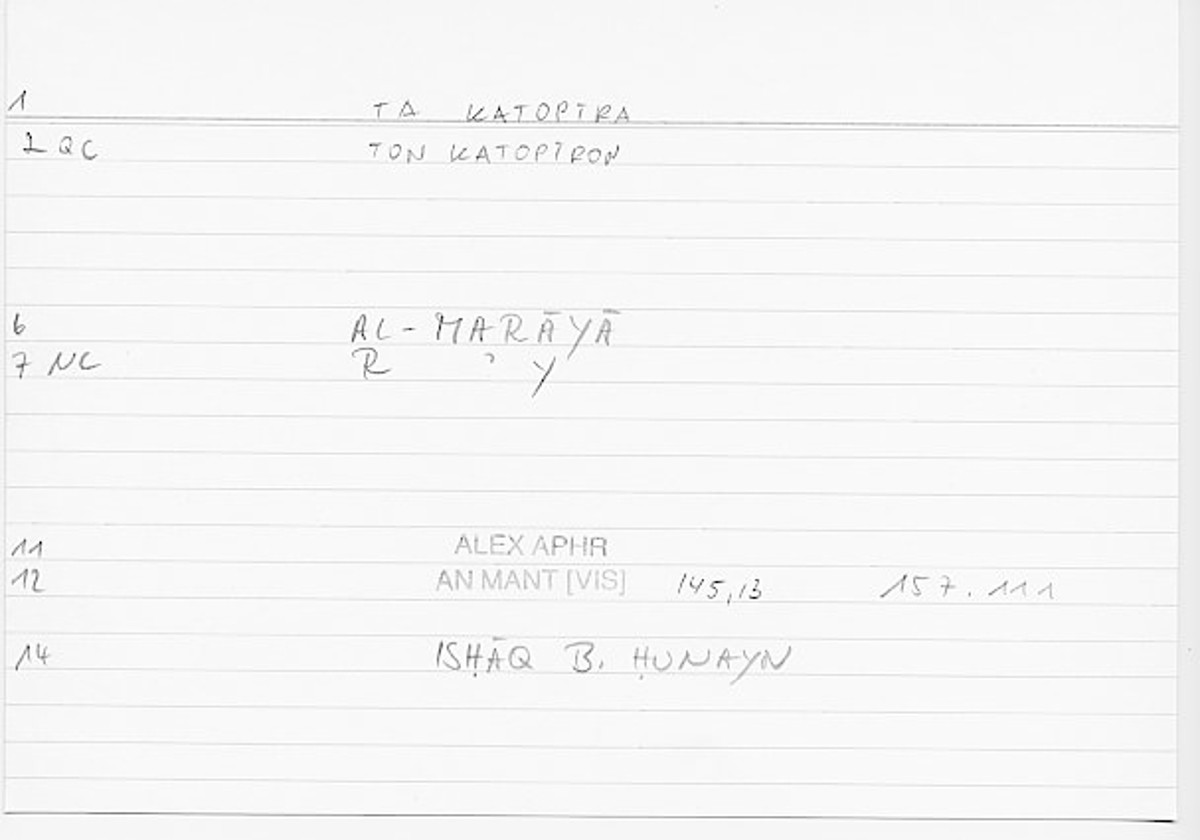 1 TA KATOPTRA
2 QC TON KATOPTRON
6 AL-MARĀYĀ
7 NC R ʾ Y
11 ALEX APHR
12 AN MANT [VIS] 145,13 157.111
14 ISḤĀQ B. ḤUNAYN